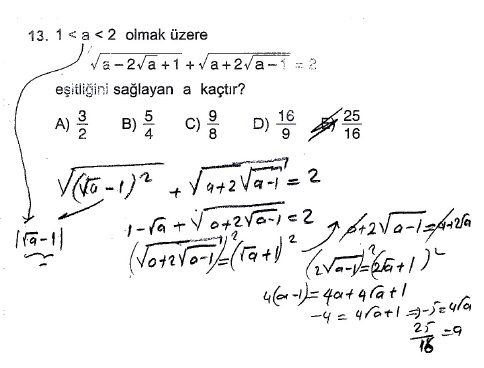 13. 1 < a < 2 olmak üzere
√(a−2√a+1) + √(a+2√(a−1)) = 2
eşitliğini sağlayan a kaçtır?
A) 3/2 B) 5/4 C) 9/8 D) 16/9 E) 25/16
√((√a−1)²) + √(a+2√(a−1)) = 2
|√a−1|
1−√a + √(a+2√(a−1)) = 2
(√(a+2√(a−1)))² = (√a+1)²
a+2√(a−1) = a+2√a
(2√(a−1))² = (2√a+1)²
4(a−1) = 4a+4√a+1
−4 = 4√a+1 ⇒ −5 = 4√a
25/16 = a